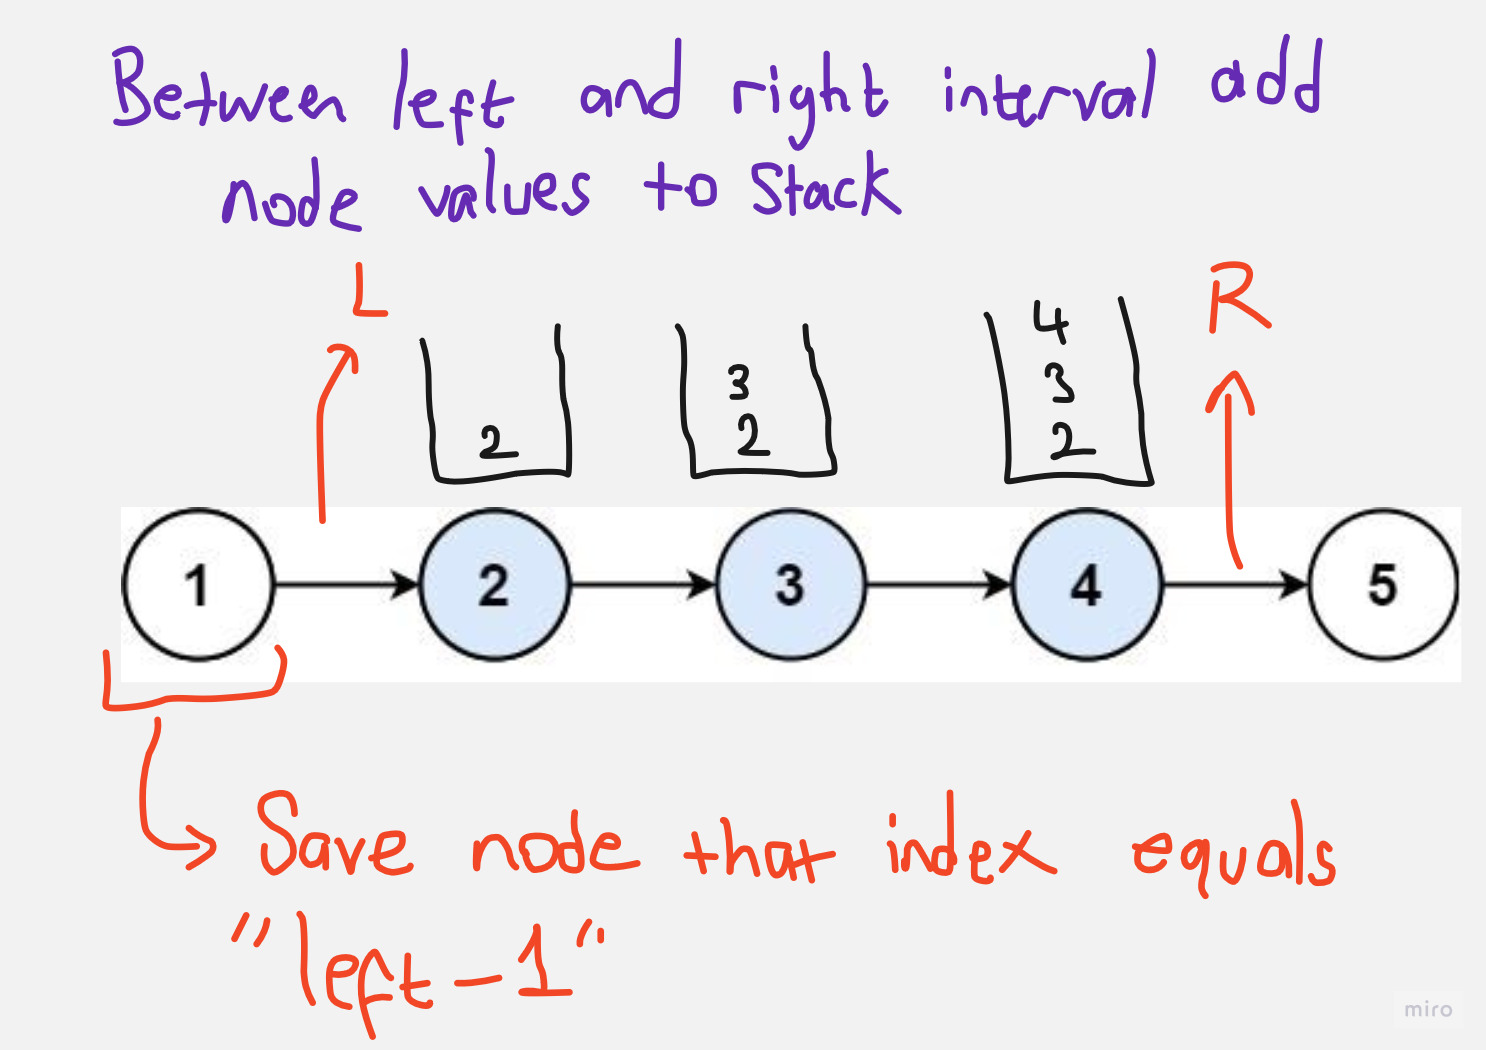 Between left and right interval add
node values to Stack
L
R
2
3
2
4
3
2
1
2
3
4
5
Save node that index equals
"left-1"
miro